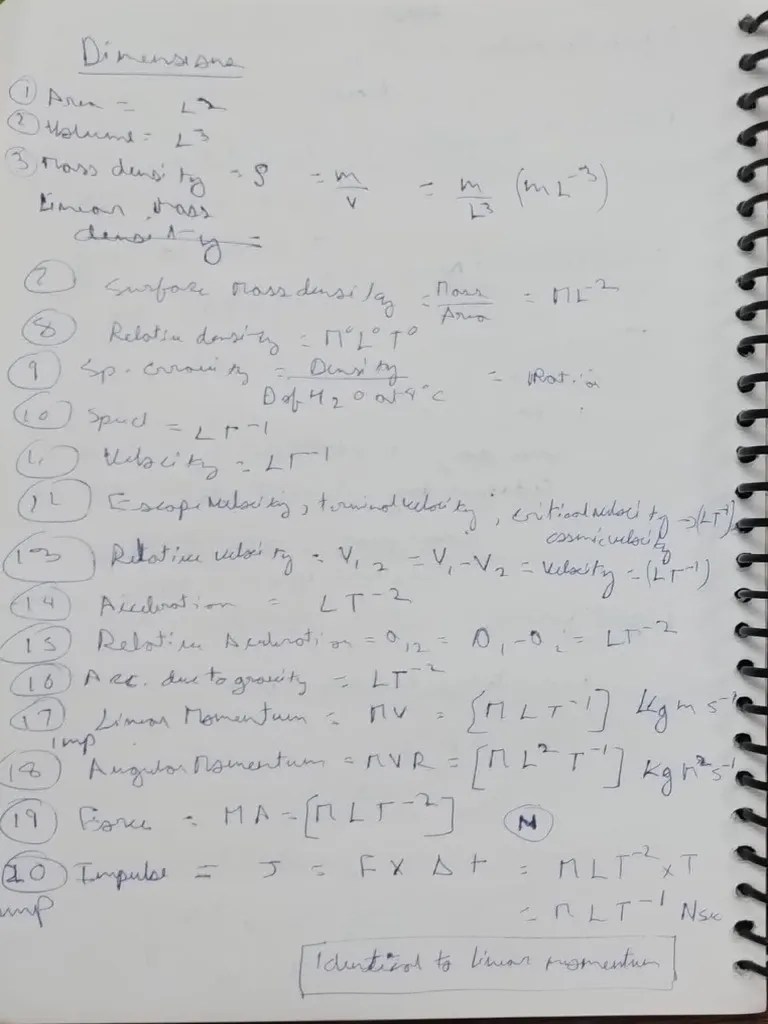 Dimensions
① Area = L²
② Volume = L³
③ Mass density = ρ = m/v = m/L³ (mL⁻³)
Linear Mass
density =
⑦ Surface Mass density = Mass/Area = ML⁻²
⑧ Relative density = M⁰L⁰T⁰
⑨ Sp. Gravity = Density/D of H₂O at 4°C = Ratio
⑩ Speed = LT⁻¹
11 Velocity = LT⁻¹
12 Escape velocity, terminal velocity, critical velocity → (LT⁻¹)
cosmic velocity
13 Relative velocity = V₁₂ = V₁-V₂ = Velocity = (LT⁻¹)
14 Acceleration = LT⁻²
15 Relative Acceleration = a₁₂ = a₁-a₂ = LT⁻²
16 Acc. due to gravity = LT⁻²
17 Linear Momentum = MV = [MLT⁻¹] Kg m s⁻¹
imp
18 Angular Momentum = MVR = [ML²T⁻¹] Kg m²s⁻¹
19 Force = MA = [MLT⁻²] N
20 Impulse = J = F x Δt = MLT⁻² x T
imp = MLT⁻¹ Nsec
Identical to Linear momentum